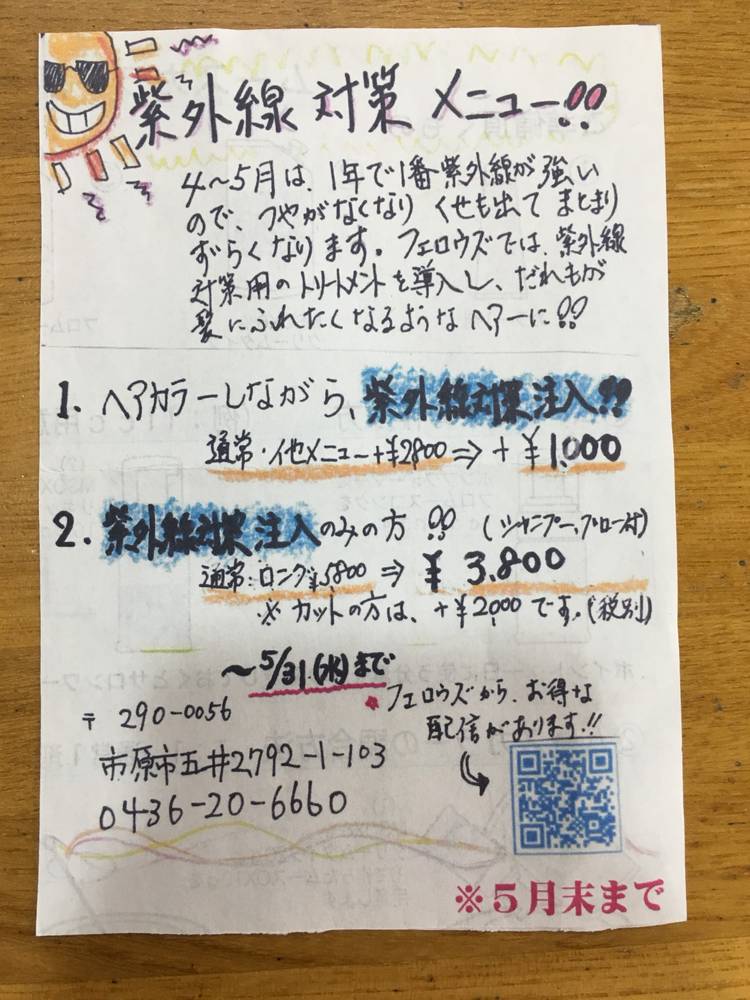 紫外線 対策 メニュー!!
4〜5月は、1年で1番紫外線が強い
ので、つやがなくなり くせも出て まとまり
ずらくなります。フェロウズでは、紫外線
対策用のトリートメントを導入し、だれもが
髪にふれたくなるような ヘアーに!!
1. ヘアカラーしながら、紫外線対策注入!!
通常・他メニュー+¥2800⇒ +¥1,000
2. 紫外線対策注入のみの方!! (シャンプー、ブロー付)
通常:ロング¥5800 ⇒ ¥3,800
※ カットの方は、+¥2,000 です。(税別)
〜5/31(水)まで
フェロウズから、お得な
配信があります!!
〒 290-0056
市原市五井2792-1-103
0436-20-6660
※5月末まで